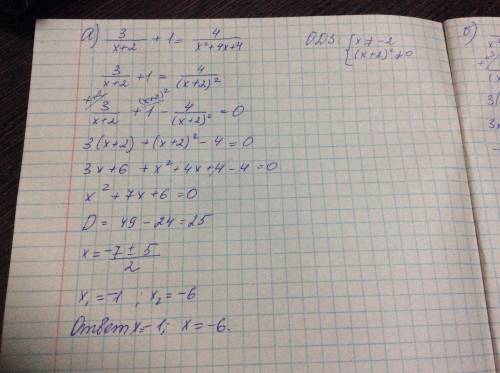 а) 3/(x+2) + 1 = 4/(x²+4x+4)
ОДЗ: { x ≠ -2
(x+2)² ≠ 0
3/(x+2) + 1 = 4/(x+2)²
x+2/ 3/(x+2) + (x+2)²/ 1 - 4/(x+2)² = 0
3(x+2) + (x+2)² - 4 = 0
3x+6 + x² + 4x + 4 - 4 = 0
x² + 7x + 6 = 0
D = 49 - 24 = 25
x = (-7 ± 5)/2
x₁ = -1 ; x₂ = -6
Ответ x = -1; x = -6.
б)